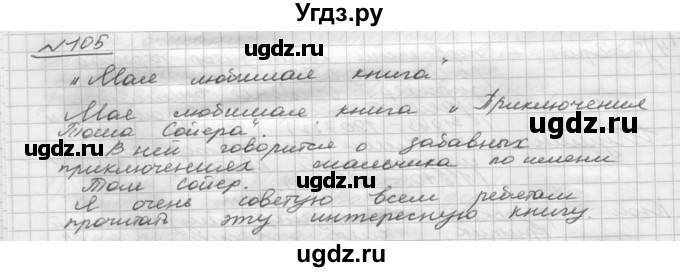 Угдз.ру
№105
gdz.ru
gdz.ru
„Моя любимая книга"
Моя любимая книга „Приключения
Тома Сойера".
gdz.ru
gdz.ru
В ней говорится о забавных
приключениях мальчика по имени
Том Сойер.
gdz.ru
Я очень советую всем ребятам
прочитать эту интересную книгу.
gdz.ru
gdz.ru